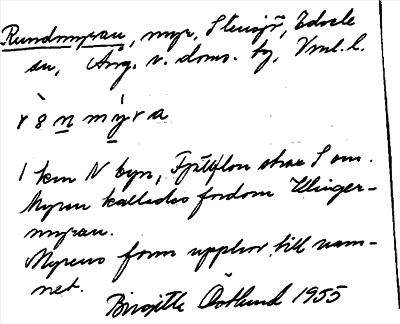 Rundmyran, myr, Stensjö, Edsele
sn, Ång. v. doms. by, Vml. l.
r ò n m ý r a
1 km N byn, Fjällsjön strax S om.
Myren kallades fordom Ellinger-
myran.
Myrens form upphov till nam-
net.
Birgitta Östlund 1955